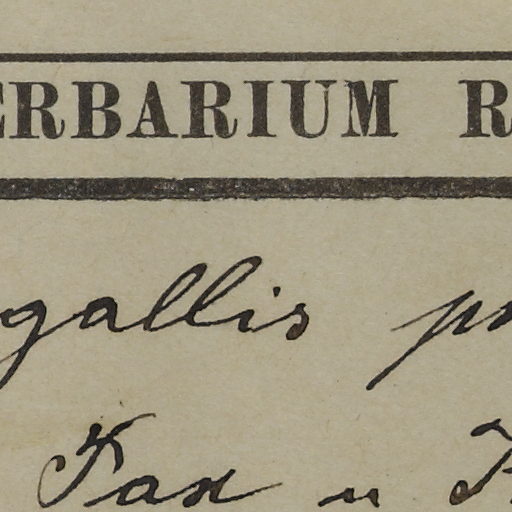 ERBARIUM R
gallis p
Fax u F